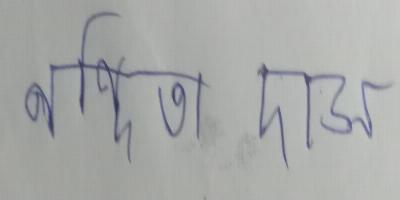 নন্দিতা দাস